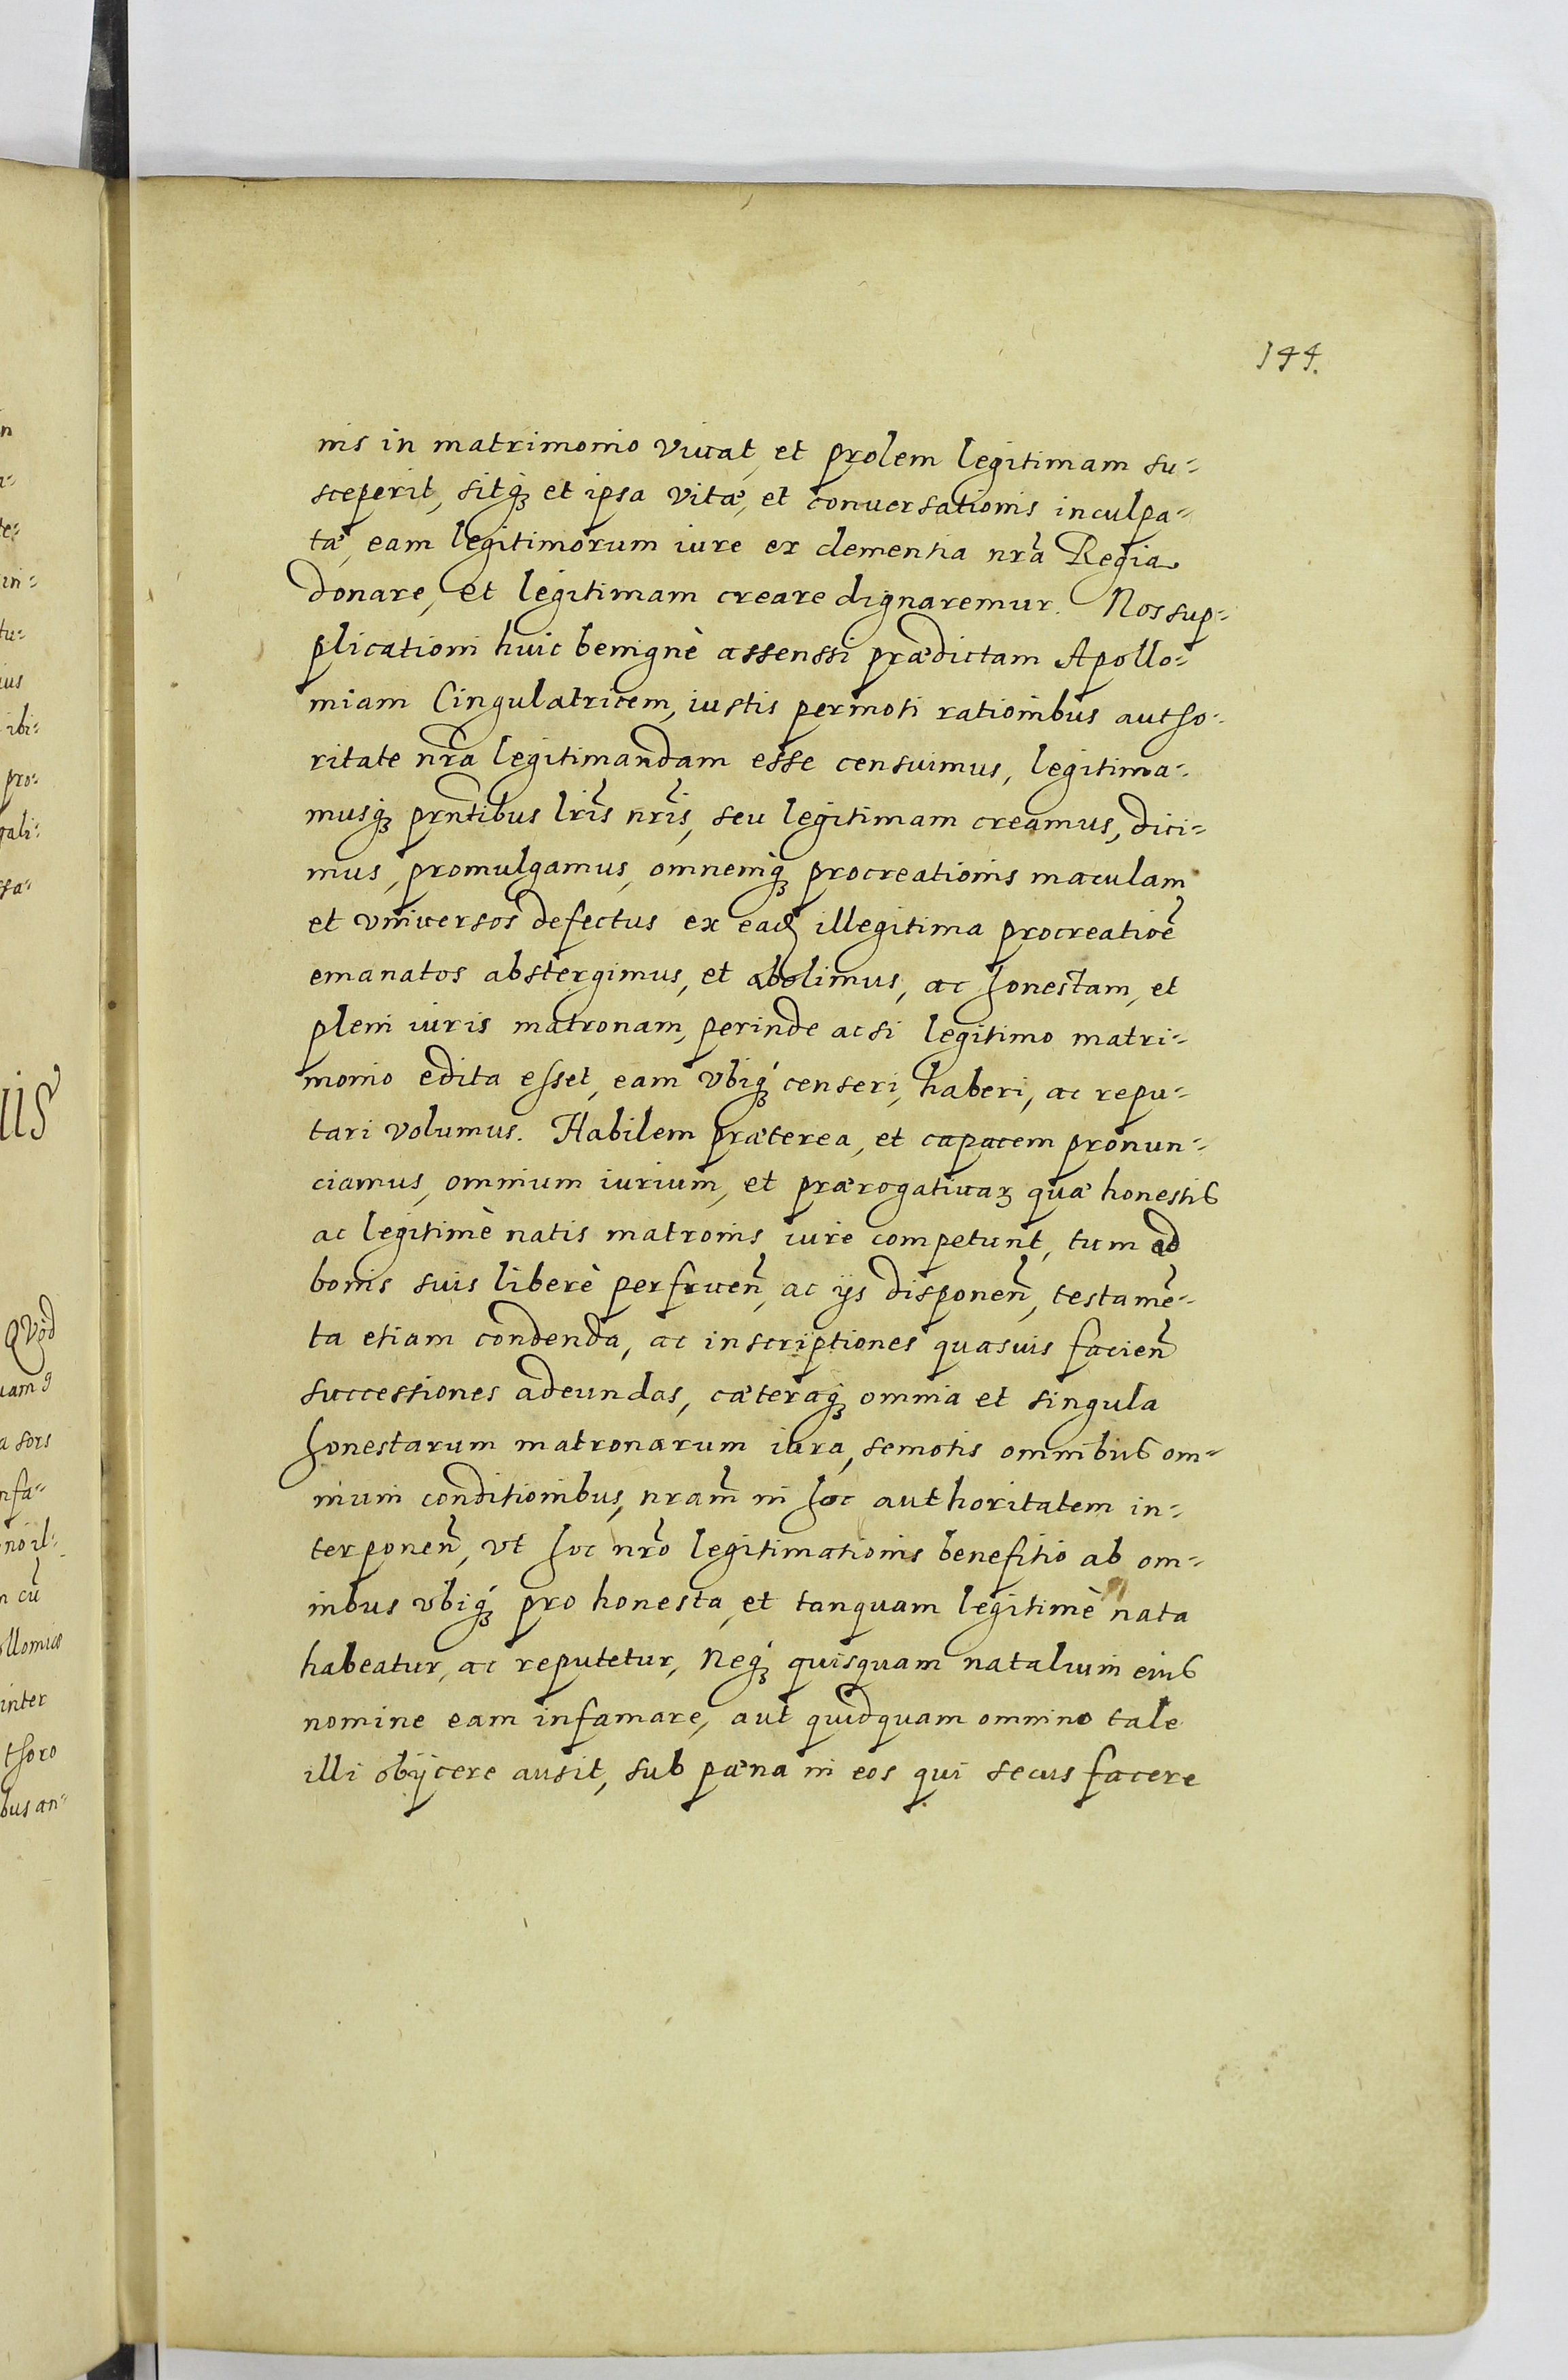 144.
nis in matrimonio viuat, et prolem legitimam su=
sceperit, sitqꝫ et ipsa vitæ, et conuersationis inculpa=
tæ, eam legitimorum iure ex clementia nrã Regia
donare, et legitimam creare dignaremur. Nos sup=
plicationi huic benignè assenssi prædictam Apollo=
niam Cingulatricem, iustis permoti rationibus autho=
ritate nrã legitimandam esse censuimus, legitima=
musqꝫ prñtibus lrĩs nrĩs, seu legitimam creamus, dici=
mus, promulgamus, omnemqꝫ procreationis maculam
et vniuersos defectus ex ead illegitima procreatioẽ
emanatos abstergimus, et abolimus, ac honestam, et
pleni iuris matronam, perinde ac si legitimo matri=
monio edita esset, eam vbiqꝫ censeri, haberi, ac repu=
tari volumus. Habilem præterea, et capacem pronun=
ciamus, omnium iurium, et prærogatiuaꝝ quæ honestis
ac legitimè natis matronis iure competunt, tum ad
bonis suis liberè perfruen̄, ac ijs disponen̄, testamẽ=
ta etiam condenda, ac inscriptiones quasuis facien̄
successiones adeundas, cæteraqꝫ omnia et singula
honestarum matronarum iura, semotis omnibus om=
nium conditionibus, nram̃ in hoc authoritatem in=
terponen̄, vt hoc nrõ legitimationis benefitio ab om=
nibus vbiqꝫ pro honesta, et tanquam legitimè nata
habeatur, ac reputetur, Neqꝫ quisquam natalium eius
nomine eam infamare, aut quidquam omnino tale
illi obijcere ausit, sub pæna in eos qui secus facere